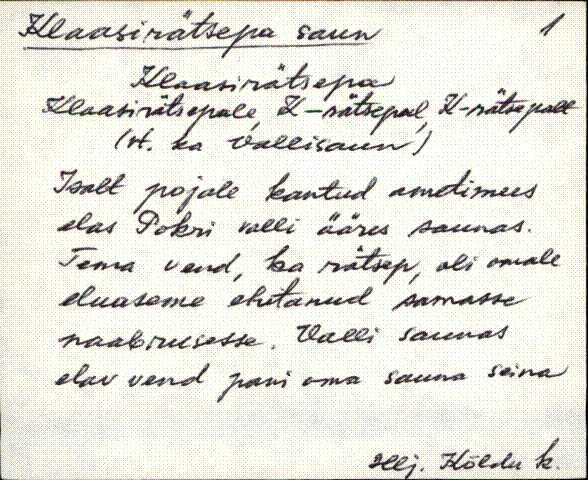 Klaasirätsepa saun 1
Klaasirätsepa
Klaasirätsepale, K-rätsepal, K-rätsepalt
(vt. ka Vallisaun)
Isalt pojale kantud ametimees
elas Pokri valli ääres saunas.
Tema vend, ka rätsep, oli omale
eluaseme ehitanud samasse
naabrusesse. Valli saunas
elav vend pani oma sauna seina
Hlj. Kõldu k.